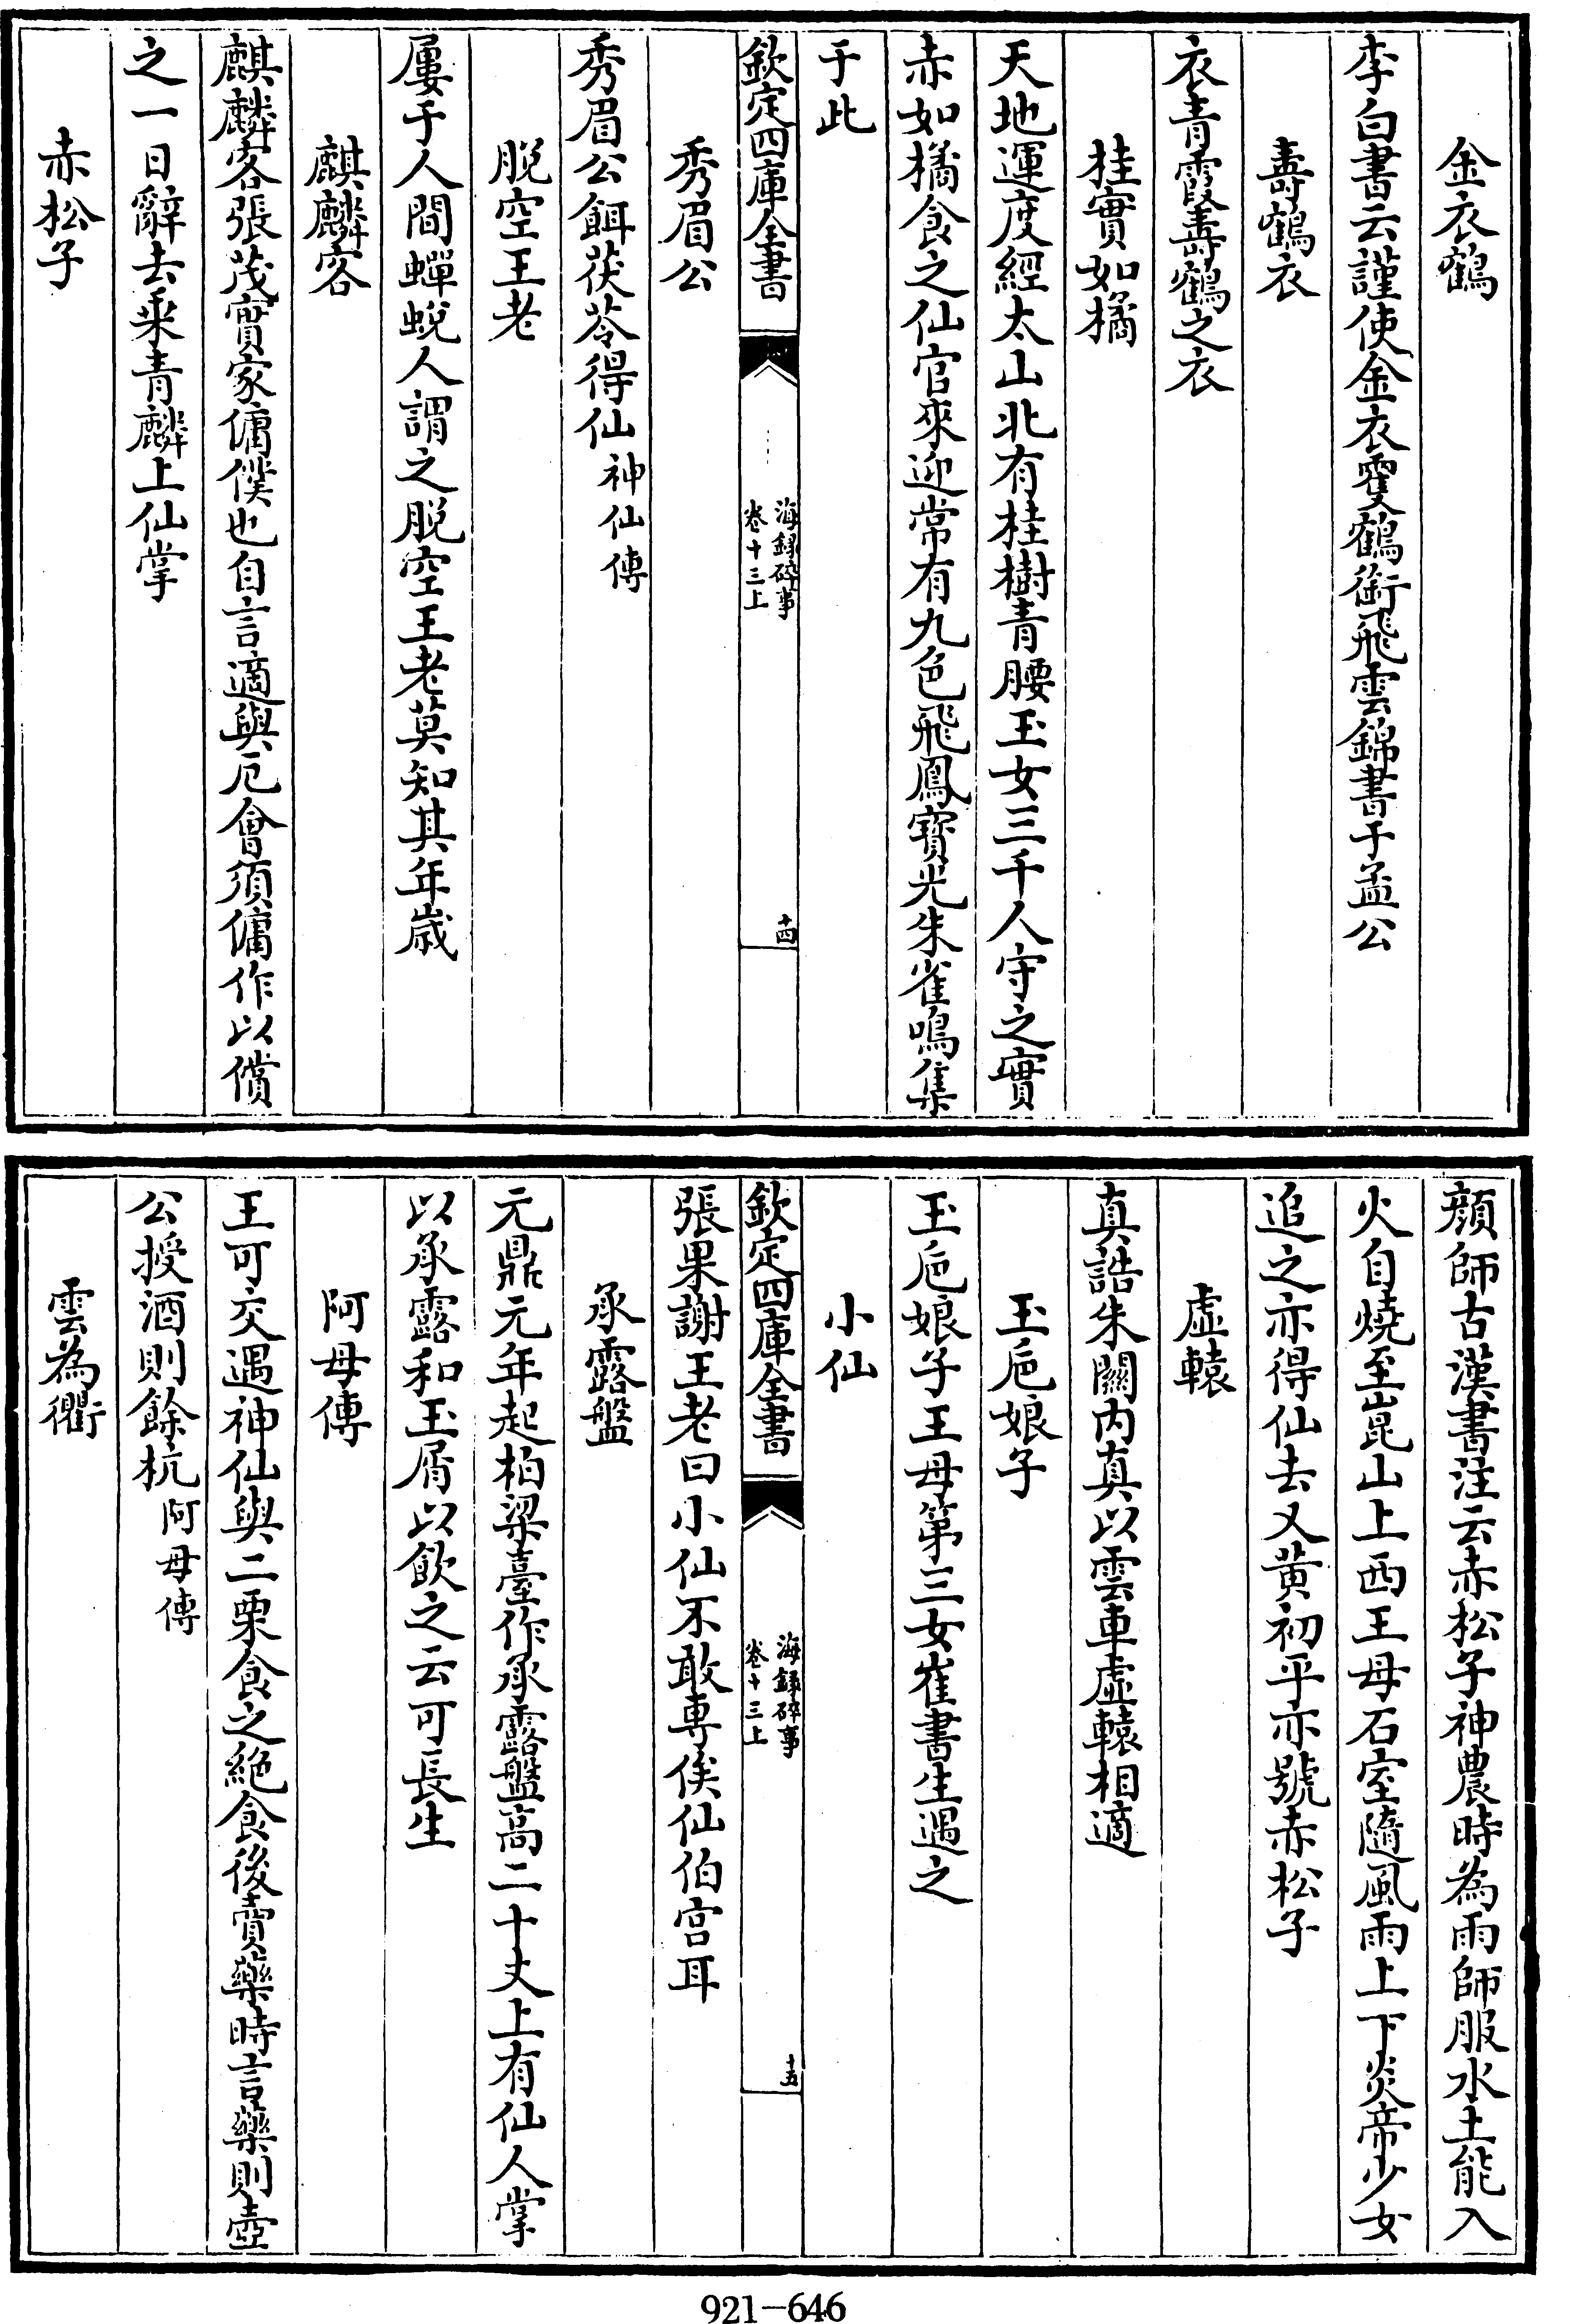 金衣鶴
李白書云謹使金衣雙鶴銜飛雲錦書于孟公
壽鶴衣
衣青霞壽鶴之衣
桂實如橘
天地運度經太山北有桂樹青腰玉女三千人守之實
赤如橘食之仙官來迎常有九色飛鳳寶光朱雀鳴集
于此
欽定四庫全書
海録碎事
卷十三上
十四
秀眉公
秀眉公餌茯苓得仙神仙傳
脱空王老
屢于人間蟬蛻人謂之脱空王老莫知其年嵗
麒麟客
麒麟客張茂實家傭僕也自言適與厄會須傭作以償
之一日辭去乘青麟上仙掌
赤松子
顔師古漢書注云赤松子神農時為雨師服水土能入
火自燒至崑山上西王母石室隨風雨上下炎帝少女
追之亦得仙去又黄初平亦號赤松子
虛轅
真誥朱闕内真以雲車虛轅相適
玉巵娘子
玉巵娘子王母第三女崔書生遇之
小仙
欽定四庫全書
海録碎事
卷十三上
十五
張果謝王老曰小仙不敢専俟仙伯宫耳
承露盤
元鼎元年起柏梁臺作承露盤高二十丈上有仙人掌
以承露和玉屑以飲之云可長生
阿母傳
王可交遇神仙與二栗食之絶食後賣藥時言藥則壺
公授酒則餘杭阿母傳
雲為衢
921-646